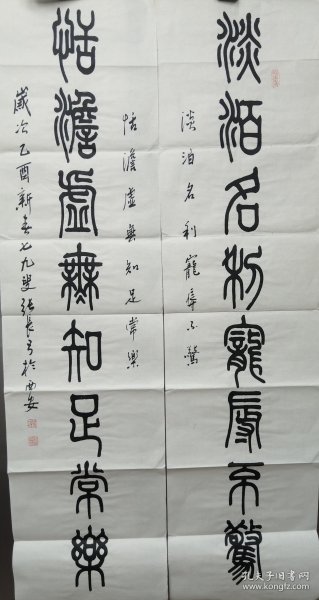 淡泊名利寵辱不驚
淡泊名利寵辱不驚
恬澹虛無知足常樂
恬澹虛無知足常樂
歲次乙酉新春七九叟張長弓於西安
孔夫子旧书网